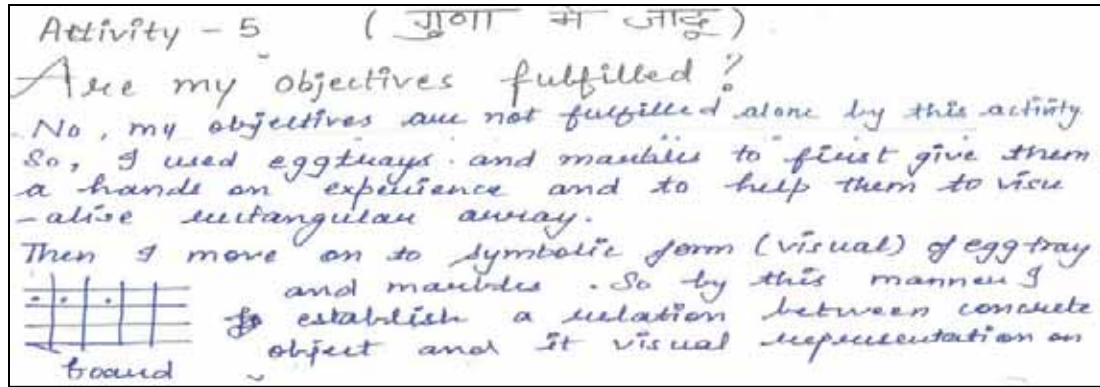 Activity - 5 (गुणा में जादू)
Are my objectives fulfilled?
No, my objectives are not fulfilled alone by this activity
So, I used eggtrays and marbles to first give them
a hands on experience and to help them to visu
-alise rectangular array.
Then I move on to symbolic form (visual) of egg tray
and marbles. So by this manner I
establish a relation between concrete
object and it visual representation on
board